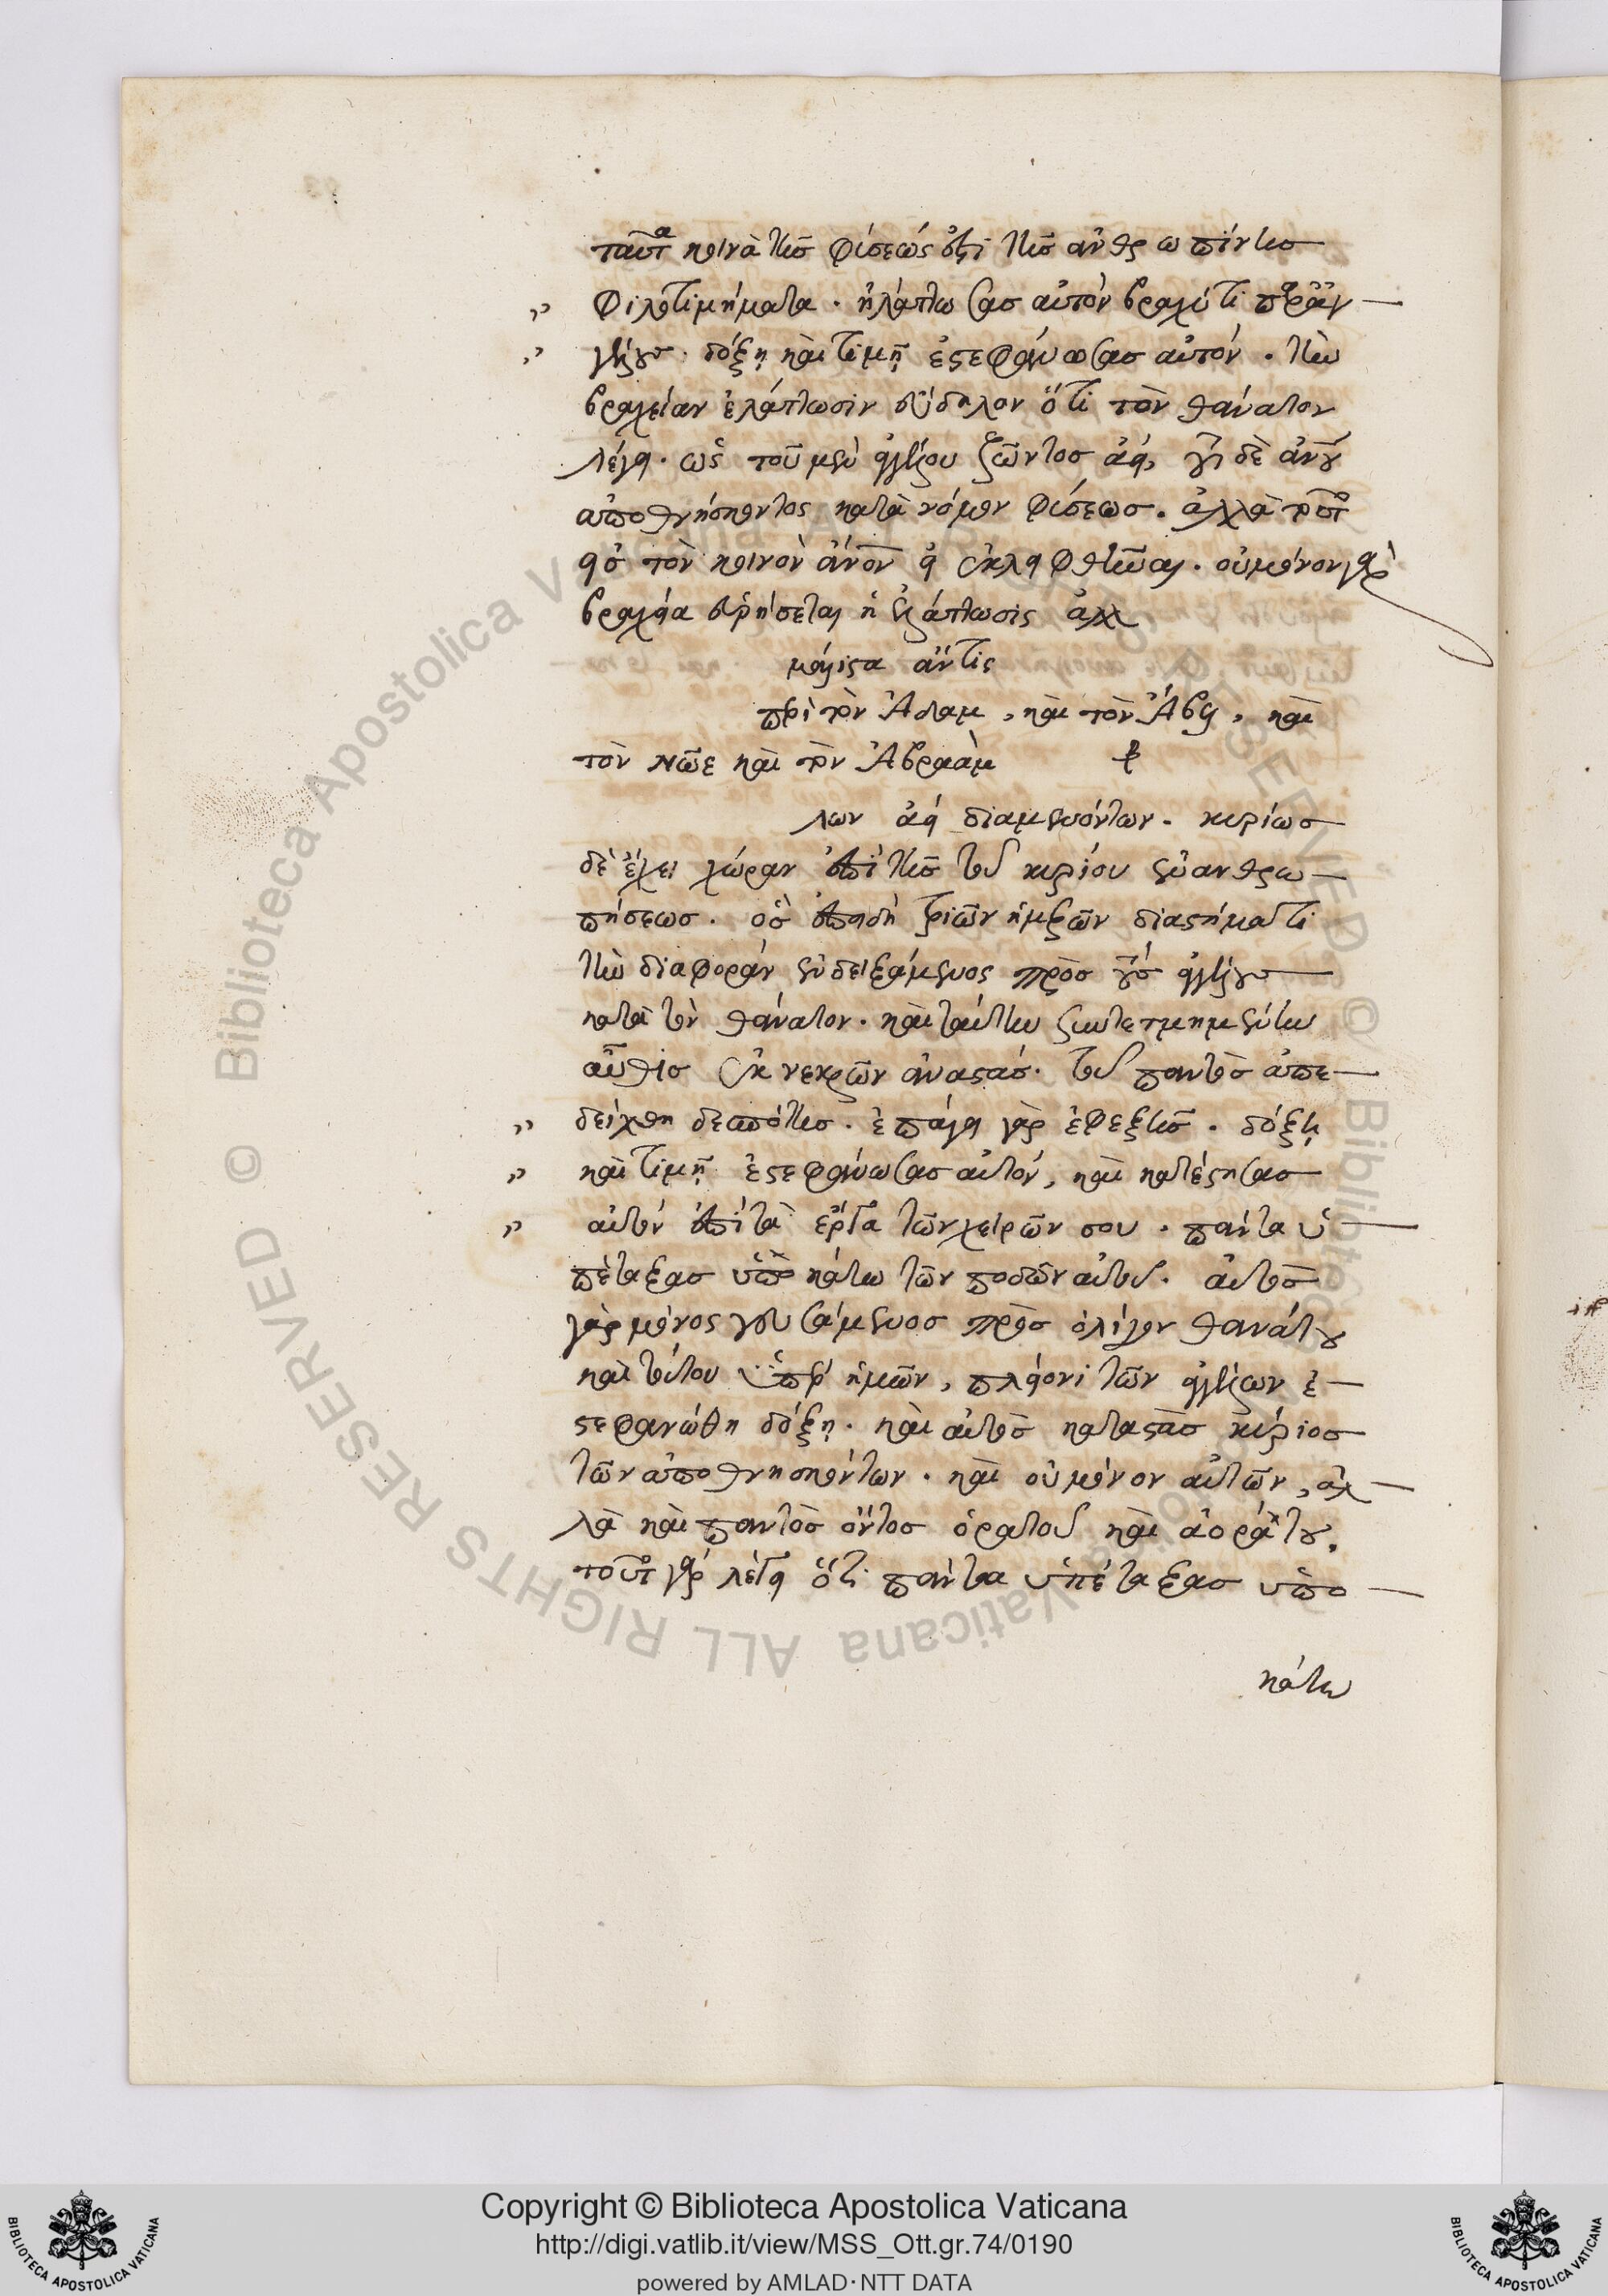 ταῦτα κοινὰ τῆς φύσεώς ἐστι τῆς ἀνθρωπίνης
" φιλοτιμήματα. ἠλάττωσας αὐτὸν βραχύ τι παρ' ἀγ
" γέλους. δόξῃ καὶ τιμῇ ἐστεφάνωσας αὐτόν. τὴν
βραχεῖαν ἐλάττωσιν εὔδηλον ὅτι τὸν θάνατον
λέγει. ὡς τοῦ μὲν ἀγγέλου ζῶντος ἀεί, τοῦ δὲ ἀνου
ἀποθνήσκοντος κατὰ νόμον φύσεως. ἀλλὰ τοῦτο
εἰς τὸν κοινὸν ἄνον εἰ ἐκληφθείη. οὐ μόνον γὰρ
βραχεῖα εὑρήσεται ἡ ἐλάττωσις ἀλλ
μεγίστα ἄν τις
περὶ τὸν Ἀδαμ, καὶ τὸν Ἄβελ, καὶ
τὸν Νῶε καὶ τὸν Ἀβραὰμ
λων ἀεὶ διαμενόντων. κυρίως
δὲ ἔχει χώραν ἐπὶ τῆς τοῦ κυρίου ἐνανθρω
πήσεως. ὃς ἐπειδὴ τριῶν ἡμερῶν διαστήματι
τὴν διαφορὰν ἐνδειξάμενος πρὸς τοὺς ἀγγέλους
κατὰ τὸν θάνατον. καὶ ταύτην συντετμημένην
αὖθις ἐκ νεκρῶν ἀναστάς. τοῦ παντὸς ἀπε
" δείχθη δεσπότης. ἐπάγει γὰρ ἐφεξῆς. δόξῃ
" καὶ τιμῇ ἐστεφάνωσας αὐτόν, καὶ κατέστησας
" αὐτὸν ἐπὶ τὰ ἔργα τῶν χειρῶν σου. πάντα ὑ
πέταξας ὑπὸ κάτω τῶν ποδῶν αὐτοῦ. αὐτὸς
γὰρ μόνος γευσάμενος πρὸς ὀλίγον θανάτου
καὶ τούτου ὑπὲρ ἡμῶν, πλείονι τῶν ἀγγέλων ἐ
στεφανώθη δόξῃ. καὶ αὐτὸς καταστὰς κύριος
τῶν ἀποθνησκόντων. καὶ οὐ μόνον αὐτῶν, ἀλ
λὰ καὶ παντὸς ὄντος ὁρατοῦ καὶ ἀοράτου.
τοῦτο γὰρ λέγει ὅτι πάντα ὑπέταξας ὑπο
κάτω
Copyright © Biblioteca Apostolica Vaticana
http://digi.vatlib.it/view/MSS_Ott.gr.74/0190
powered by AMLAD·NTT DATA
BIBLIOTECA APOSTOLICA VATICANA
BIBLIOTECA APOSTOLICA VATICANA
© Biblioteca Apostolica Vaticana ALL RIGHTS RESERVED
© Biblioteca Apostolica Vaticana ALL RIGHTS RESERVED